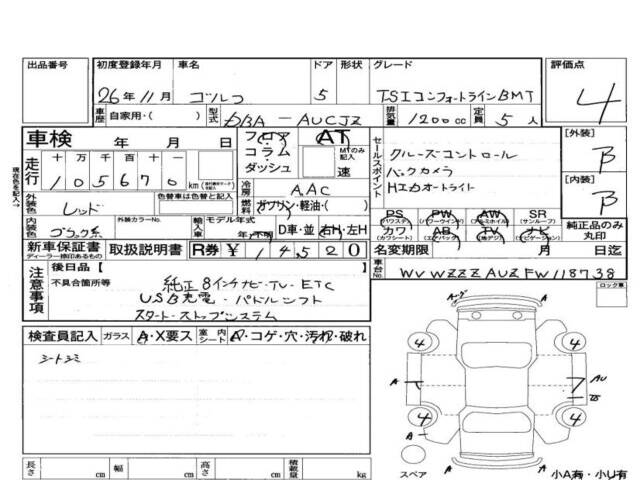 出品番号 初度登録年月 車名 ドア 形状 グレード 評価点
26年11月 ゴルフ 5 TSIコンフォートラインBMT 4
車歴 自家用・( ) 型式 DBA-AUCJZ 排気量 1200cc 定員 5人
車検 年 月 日 フロア・コラム・ダッシュ AT MTのみ記入 速 セールスポイント [外装] B
現車色を記入→
走行 十 万 千 百 十 一 クルーズコントロール
105670 km バックカメラ [内装] B
冷房 AAC Hエカオートライト
外装色 レッド 色替車は色替と記入 燃料 ガソリン・軽油・( )
PS (パワステ) PW (パワーウインド) AW (アルミホイル) SR (サンルーフ)
内装色 ブラック系 外装カラーNo. 輸入車 モデル年式 年・不明 D車・並 右H・左H カワ (カワシート) AB (エアバック) TV (地デジ) ナビ (ナビゲーション) 純正品のみ丸印
新車保証書 ディーラー捺印あるもの 取扱説明書 R券 ¥ 14520 名変期限 月 日迄
注意事項 後日品【 】 車台No. WVWZZZAUZFW118738
不具合箇所等 純正8インチナビ・TV・ETC ロック車
USB充電・パドルシフト
スタートストップシステム
検査員記入 ガラス A・X要ス 室内 シート A・コゲ・穴・汚れ・破れ
シートシミ
A
4 4
A AU
TS
4 4
A
スペア 小A有・小U有
長さ cm 幅 cm 高さ cm 積載量 kg